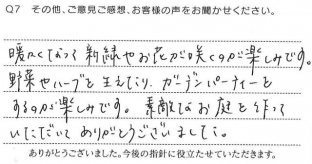 Q7 その他、ご意見ご感想、お客様の声をお聞かせください。
暖かくなって新緑やお花が咲くのが楽しみです。
野菜やハーブを生えたり、ガーデンパーティーを
するのが楽しみです。素敵なお庭を作って
いただいてありがとうございました。
ありがとうございました。今後の指針に役立たせていただきます。